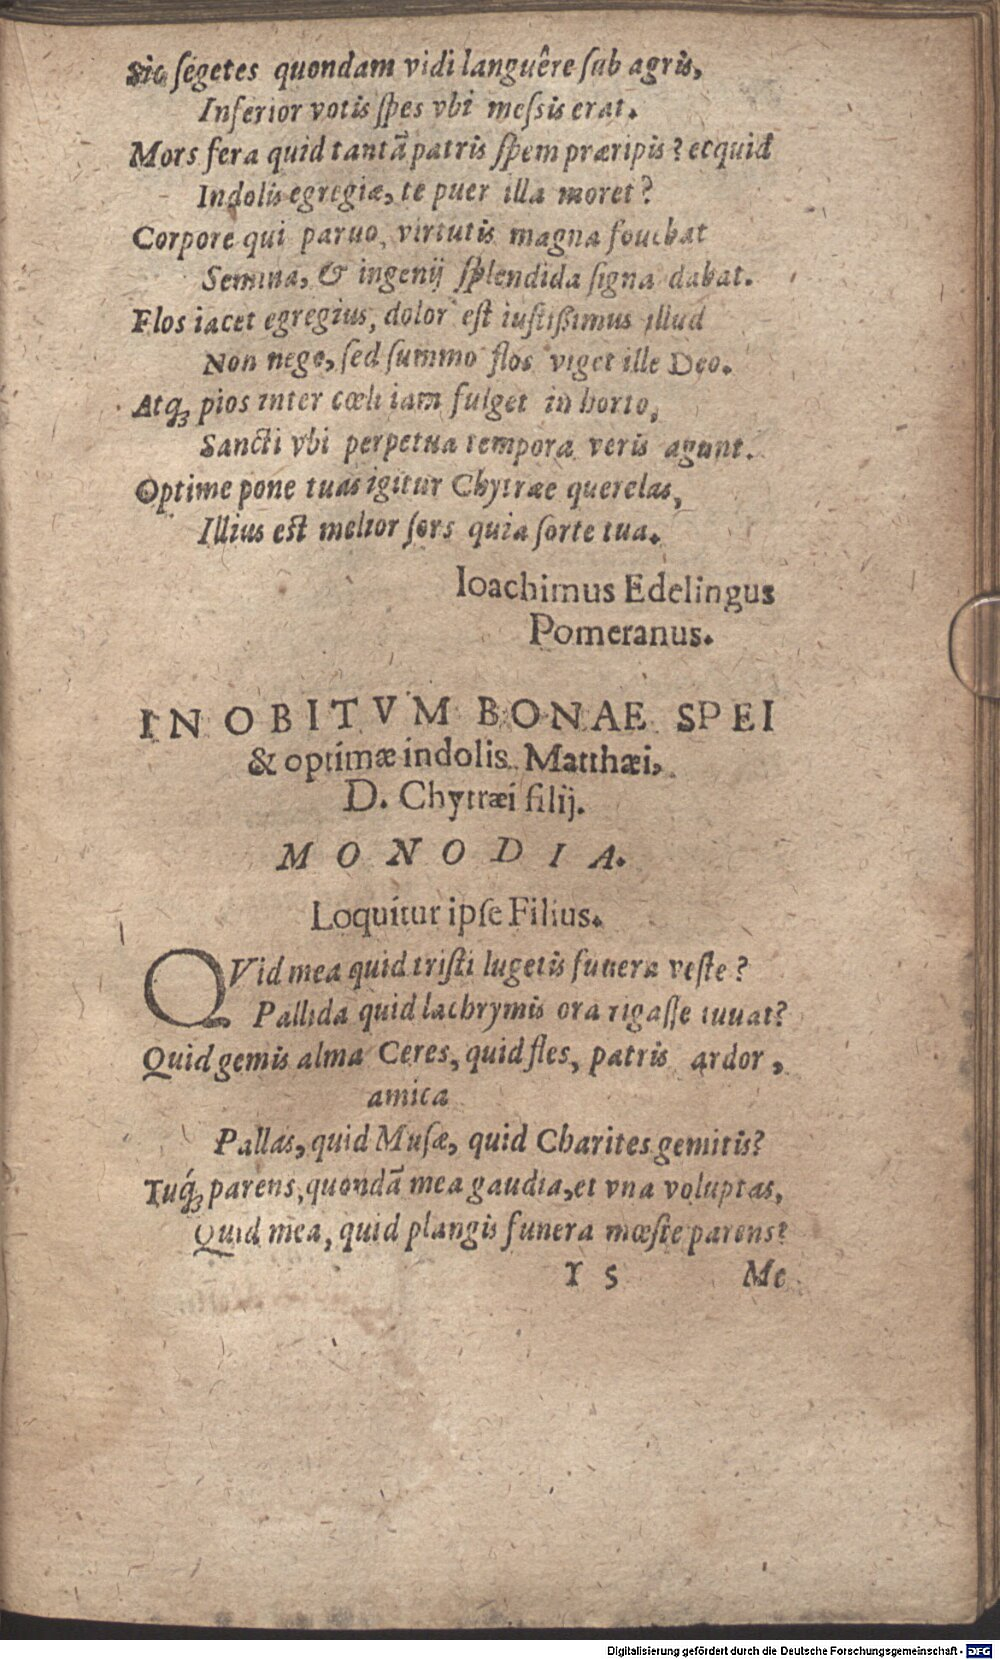 Sic ſegetes quondam vidi languêre ſub agris,
Inferior votis ſpes vbi meſsis erat.
Mors fera quid tantã patris ſpem præripis? ecquid
Indolis egregiæ, te puer illa moret?
Corpore qui paruo, virtutis magna fouebat
Semina, & ingenij ſplendida ſigna dabat.
Flos iacet egregius, dolor est iuſtißimus illud
Non nego, ſed ſummo flos viget ille Deo.
Atq́ꝫ pios inter cœli iam fulget in horto,
Sancti vbi perpetua tempora veris agunt.
Optime pone tuas igitur Chytræe querelas,
Illius est melior ſors quia ſorte tua.
Ioachimus Edelingus
Pomeranus.
IN OBITVM BONAE SPEI
& optimæ indolis Matthæi,
D. Chytræi filij.
MONODIA.
Loquitur ipſe Filius.
QVid mea quid triſti lugetis funera veſte?
Pallida quid lachrymis ora rigaſſe iuuat?
Quid gemis alma Ceres, quid fles, patris ardor,
amica
Pallas, quid Muſæ, quid Charites gemitis?
Tuq́ꝫ parens, quondã mea gaudia, et vna voluptas,
Quid mea, quid plangis funera mœſte parens?
Y 5 Me
Digitalisierung gefördert durch die Deutsche Forschungsgemeinschaft - DFG